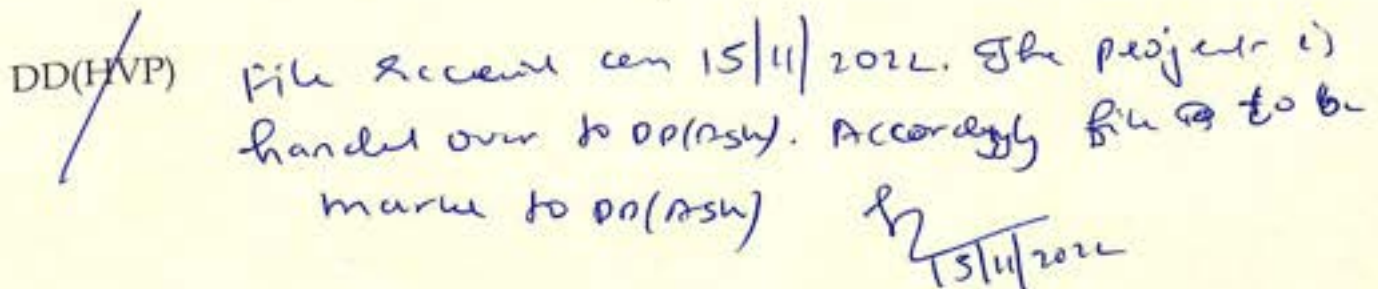 DD(HVP) File Received on 15/11/2022. The project is
handed over to DD(ASK). Accordingly file is to be
marked to DD(ASK)
15/11/2022